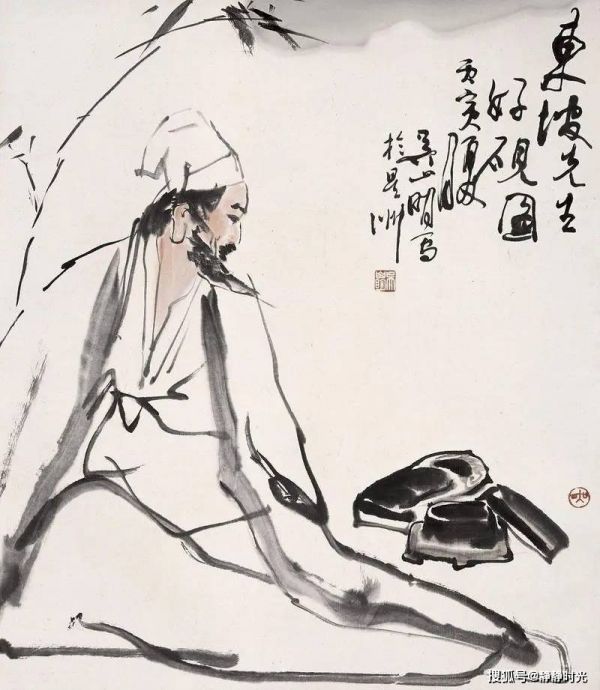 東坡先生
好硯圖
丙寅
吴山明写
於星洲
搜狐号@静静时光